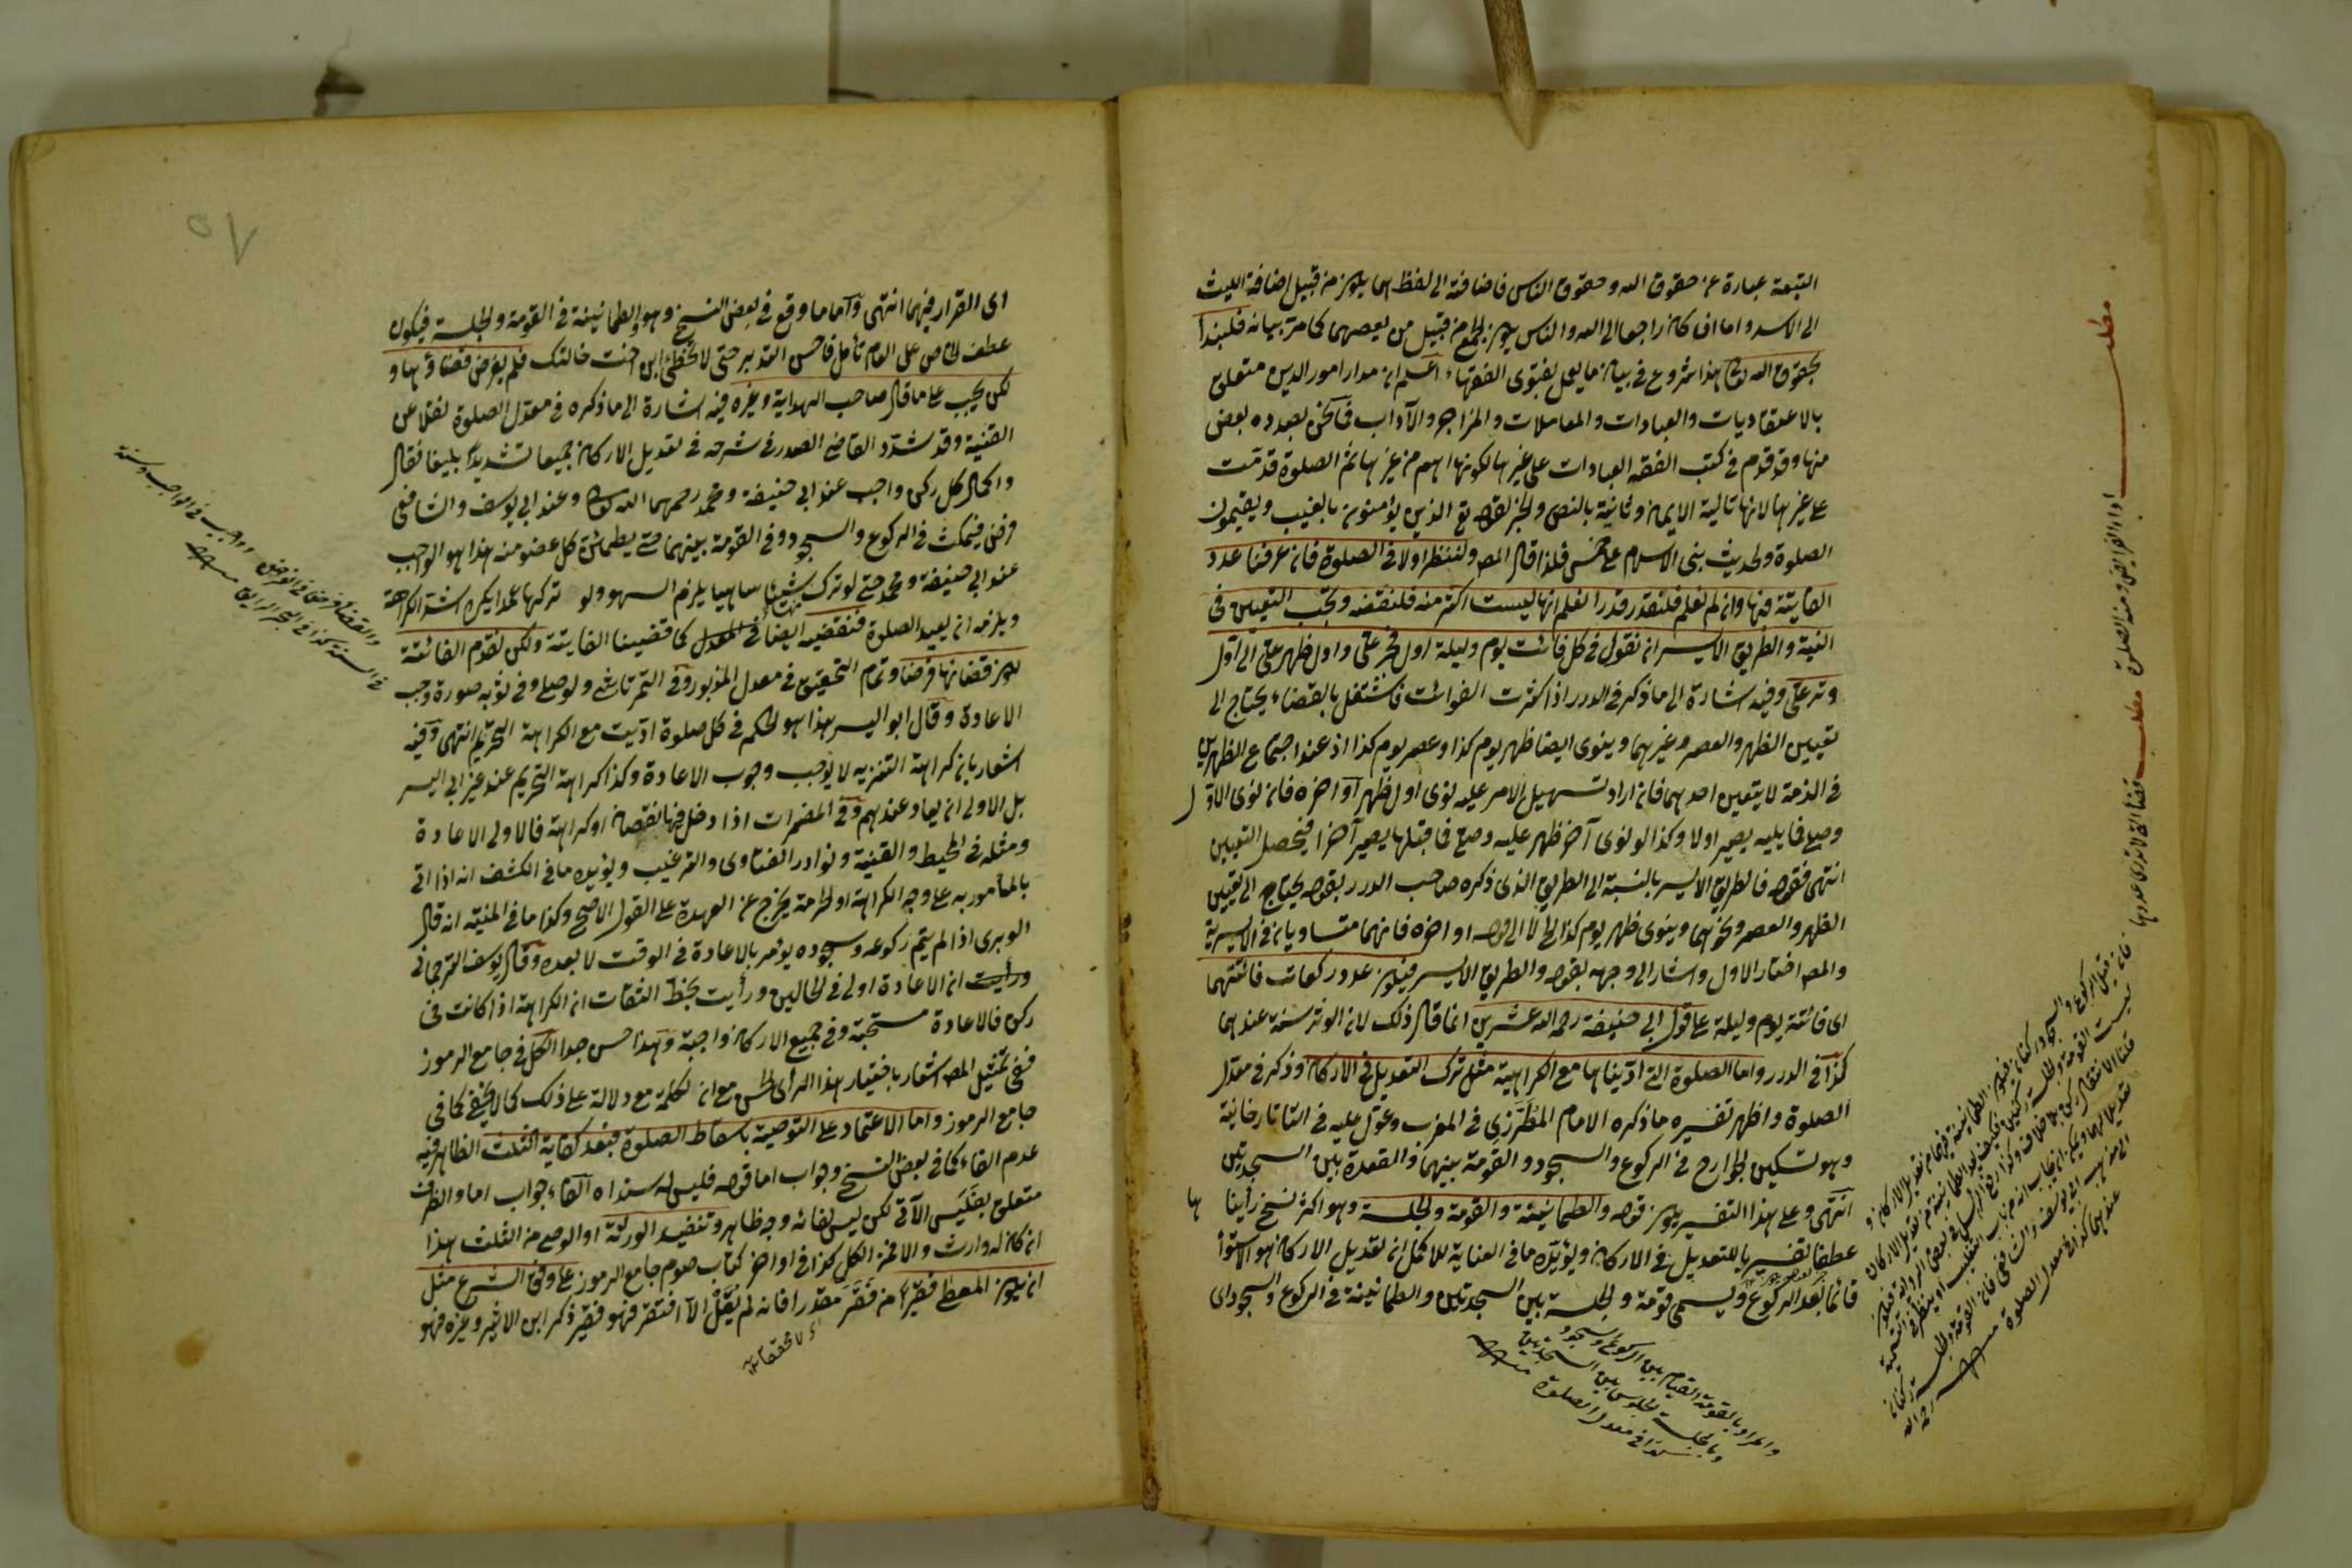 التبعة عبارة عن حقوق الله وحقوق الناس فاضافته الى لفظ هما يكون من قبيل اضافة الليث
الى الاسد واما ان كان راجعا الى الله والناس يكون الجمع من قبيل من يعصهما كما مر بيانه فلنبدأ
بحقوق الله تعالى هذا شروع في بيان ما يعمل بفتوى الفقهاء اعلم ان مدار امور الدين متعلق
بالاعتقاديات والعبادات والمعاملات والمزاجر والآداب بعض
منها وقد قدم في كتب الفقه العبادات على غيرها لكونها اهم من غيرها ثم الصلوة قدمت
على غيرها لانها تالية الايمان وثانيه بالنص والخبر لقوله تع الذين يؤمنون بالغيب ويقيمون
الصلوة ولحديث بنى الاسلام على خمس فلذا قال المص ولننظر اولا في الصلوة فان عرفنا عدد
الفايتة فيها وان لم نعلم فلنقدر قدرا نعلم انها ليست اكثر منه فلنقضه ويجب التعيين في
النية والطريق الايسر ان نقول في كل فائت يوم وليلة اول فجر علىّ واول ظهر علىّ الى اول
وتر علىّ وفيه اشارة الى ما ذكر في الدرر اذا كثرت الفوائت فاشتغل بالقضاء يحتاج الى
تعيين الظهر والعصر وغيرهما وينوى ايضا ظهر يوم كذا وعصر يوم كذا اذ عند اجتماع الظهرين
في الذمة لا يتعين احدهما فان اراد تسهيل الامر عليه نوى اول ظهر او آخره فان نوى الاول
وصلى فما يليه يصير اولا وكذا لو نوى آخر ظهر عليه وصلى فما قبلها يصير آخرا فيحصل التعيين
انتهى فقوله فالطريق الايسر بالنسبة الى الطريق الذى ذكره صاحب الدرر بقوله يحتاج الى تعيين
الظهر والعصر ونحوهما وينوى ظهر يوم كذا الخ لا الى قوله او آخره فانهما متساويان في الايسرية
والمص اختار الاول واشار الى وجهه بقوله والطريق الايسر فيكون عدد ركعات فائتتهما
اى فائتة يوم وليلة على قول ابى حنيفة رحمه الله عشرين انما قال ذلك لان الوتر سنة عندهما
كذا في الدرر واما الصلوة التى اديناها مع الكراهية مثل ترك التعديل في الاركان وذكر في معدل
الصلوة واظهر تفسيره ما ذكره الامام المطرزى في المغرب وعول عليه في التاتارخانية
وهو تسكين الجوارح في الركوع والسجود والقومة بينهما والقعدة بين السجدتين
انتهى وعلى هذا التفسير يكون قوله والطمانينة والقومة والجلسة وهو اكثر نسخ رأيناها
عطفا تفسيريا للتعديل في الاركان ويؤيده ما في العناية للاكمل ان تعديل الاركان هو الاستوآ
قائما بعد الركوع ويسمى قومة والجلسة بين السجدتين والطمانينة في الركوع والسجود اى
مطلب
اداء الفرائض ومنه الصلوة
مطلب
قضاء الفائتة لا تدرى عددها
والمراد بالقومة القيام بين الركوع والسجود
وبالجلسة الجلوس بين السجدتين
كذا في معدل الصلوة منه
اى القرار فيهما انتهى واما ما وقع في بعض النسخ وهو الطمانينة في القومة والجلسة فيكون
عطف الخاص على العام تأمل فاحسن التدبر حتى لا تخطئ ابن اخت خالتك فلم يفرض قضاؤها و
لكن يجب على ما قال صاحب الهداية وغيره فيه اشارة الى ما ذكره في معدل الصلوة نقلا عن
القنية وقد شدد القاضى الصدر في شرحه في تعديل الاركان جميعا تشديدا بليغا فقال
واكمال كل ركن واجب عند ابى حنيفة ومحمد رحمهما الله تعالى وعند ابى يوسف والشافعى
فرض فيمكث في الركوع والسجود وفى القومة بينهما حتى يطمئن كل عضو منه هذا هو الواجب
عند ابى حنيفة ومحمد حتى لو ترك شيئا ساهيا يلزم السهو ولو تركها عمدا يكره اشد الكراهة
ويلزمه ان يعيد الصلوة فنقضيه ايضا كما قضينا الفايتة ولكن نقدم الفائتة
لكون قضائها فرضا وتمام التحقيق في معدل المزبور وفى التمرتاشى ولو صلى وفى ثوبه صورة وجب
الاعادة وقال ابو اليسر هذا هو الحكم في كل صلوة اديت مع الكراهة التحريم انتهى وفيه
اشعار بان كراهة التنزيه لا يوجب وجوب الاعادة وكذا كراهة التحريم عند غير ابى اليسر
بل الاولى ان يعاد عندهم وفى المضمرات اذا دخل فيها نقصان او كراهة فالاولى الاعادة
ومثله في المحيط والقنية ونوادر الفتاوى والترغيب ويؤيده ما في الكشف انه اذا اتى
بالمأمور به على وجه الكراهة او الحرمة يخرج عن العهدة على القول الاصح وكذا ما في المنية انه قال
الوبرى اذا لم يتم ركوعه وسجوده يؤمر بالاعادة في الوقت لا بعده وقال يوسف الترجمانى
ان الاعادة اولى في الحالين ورأيت بخط الثقات ان الكراهة اذا كانت في
ركن فالاعادة مستحبة وفى جميع الاركان واجبة وهذا حسن جدا الكل في جامع الرموز
ففى تمثيل المص اشعار باختيار هذا الرأى الحسن مع ان لكلمة مع دلالة على ذلك كما لا يخفى كما في
جامع الرموز واما الاعتماد على التوصية باسقاط الصلوة فبعد كفاية الثلث الظاهر فيه
عدم الفاء كما في بعض النسخ وجواب اما قوله فليس له سند اه الفاء جواب اما والظرف
متعلق بفليس الآتى لكن ليس لفائه وجه ظاهر وتنفيذ الورثة او الوصى من الثلث هذا
ان كان له وارث والا فمن الكل كذا في اواخر كتاب صوم جامع الرموز على وفق الشرع مثل
ان يكون المعطى فقيرا من فقر مقدرا فانه لم يقل الا افتقر فهو فقير ذكر ابن الاثير وغيره فهو